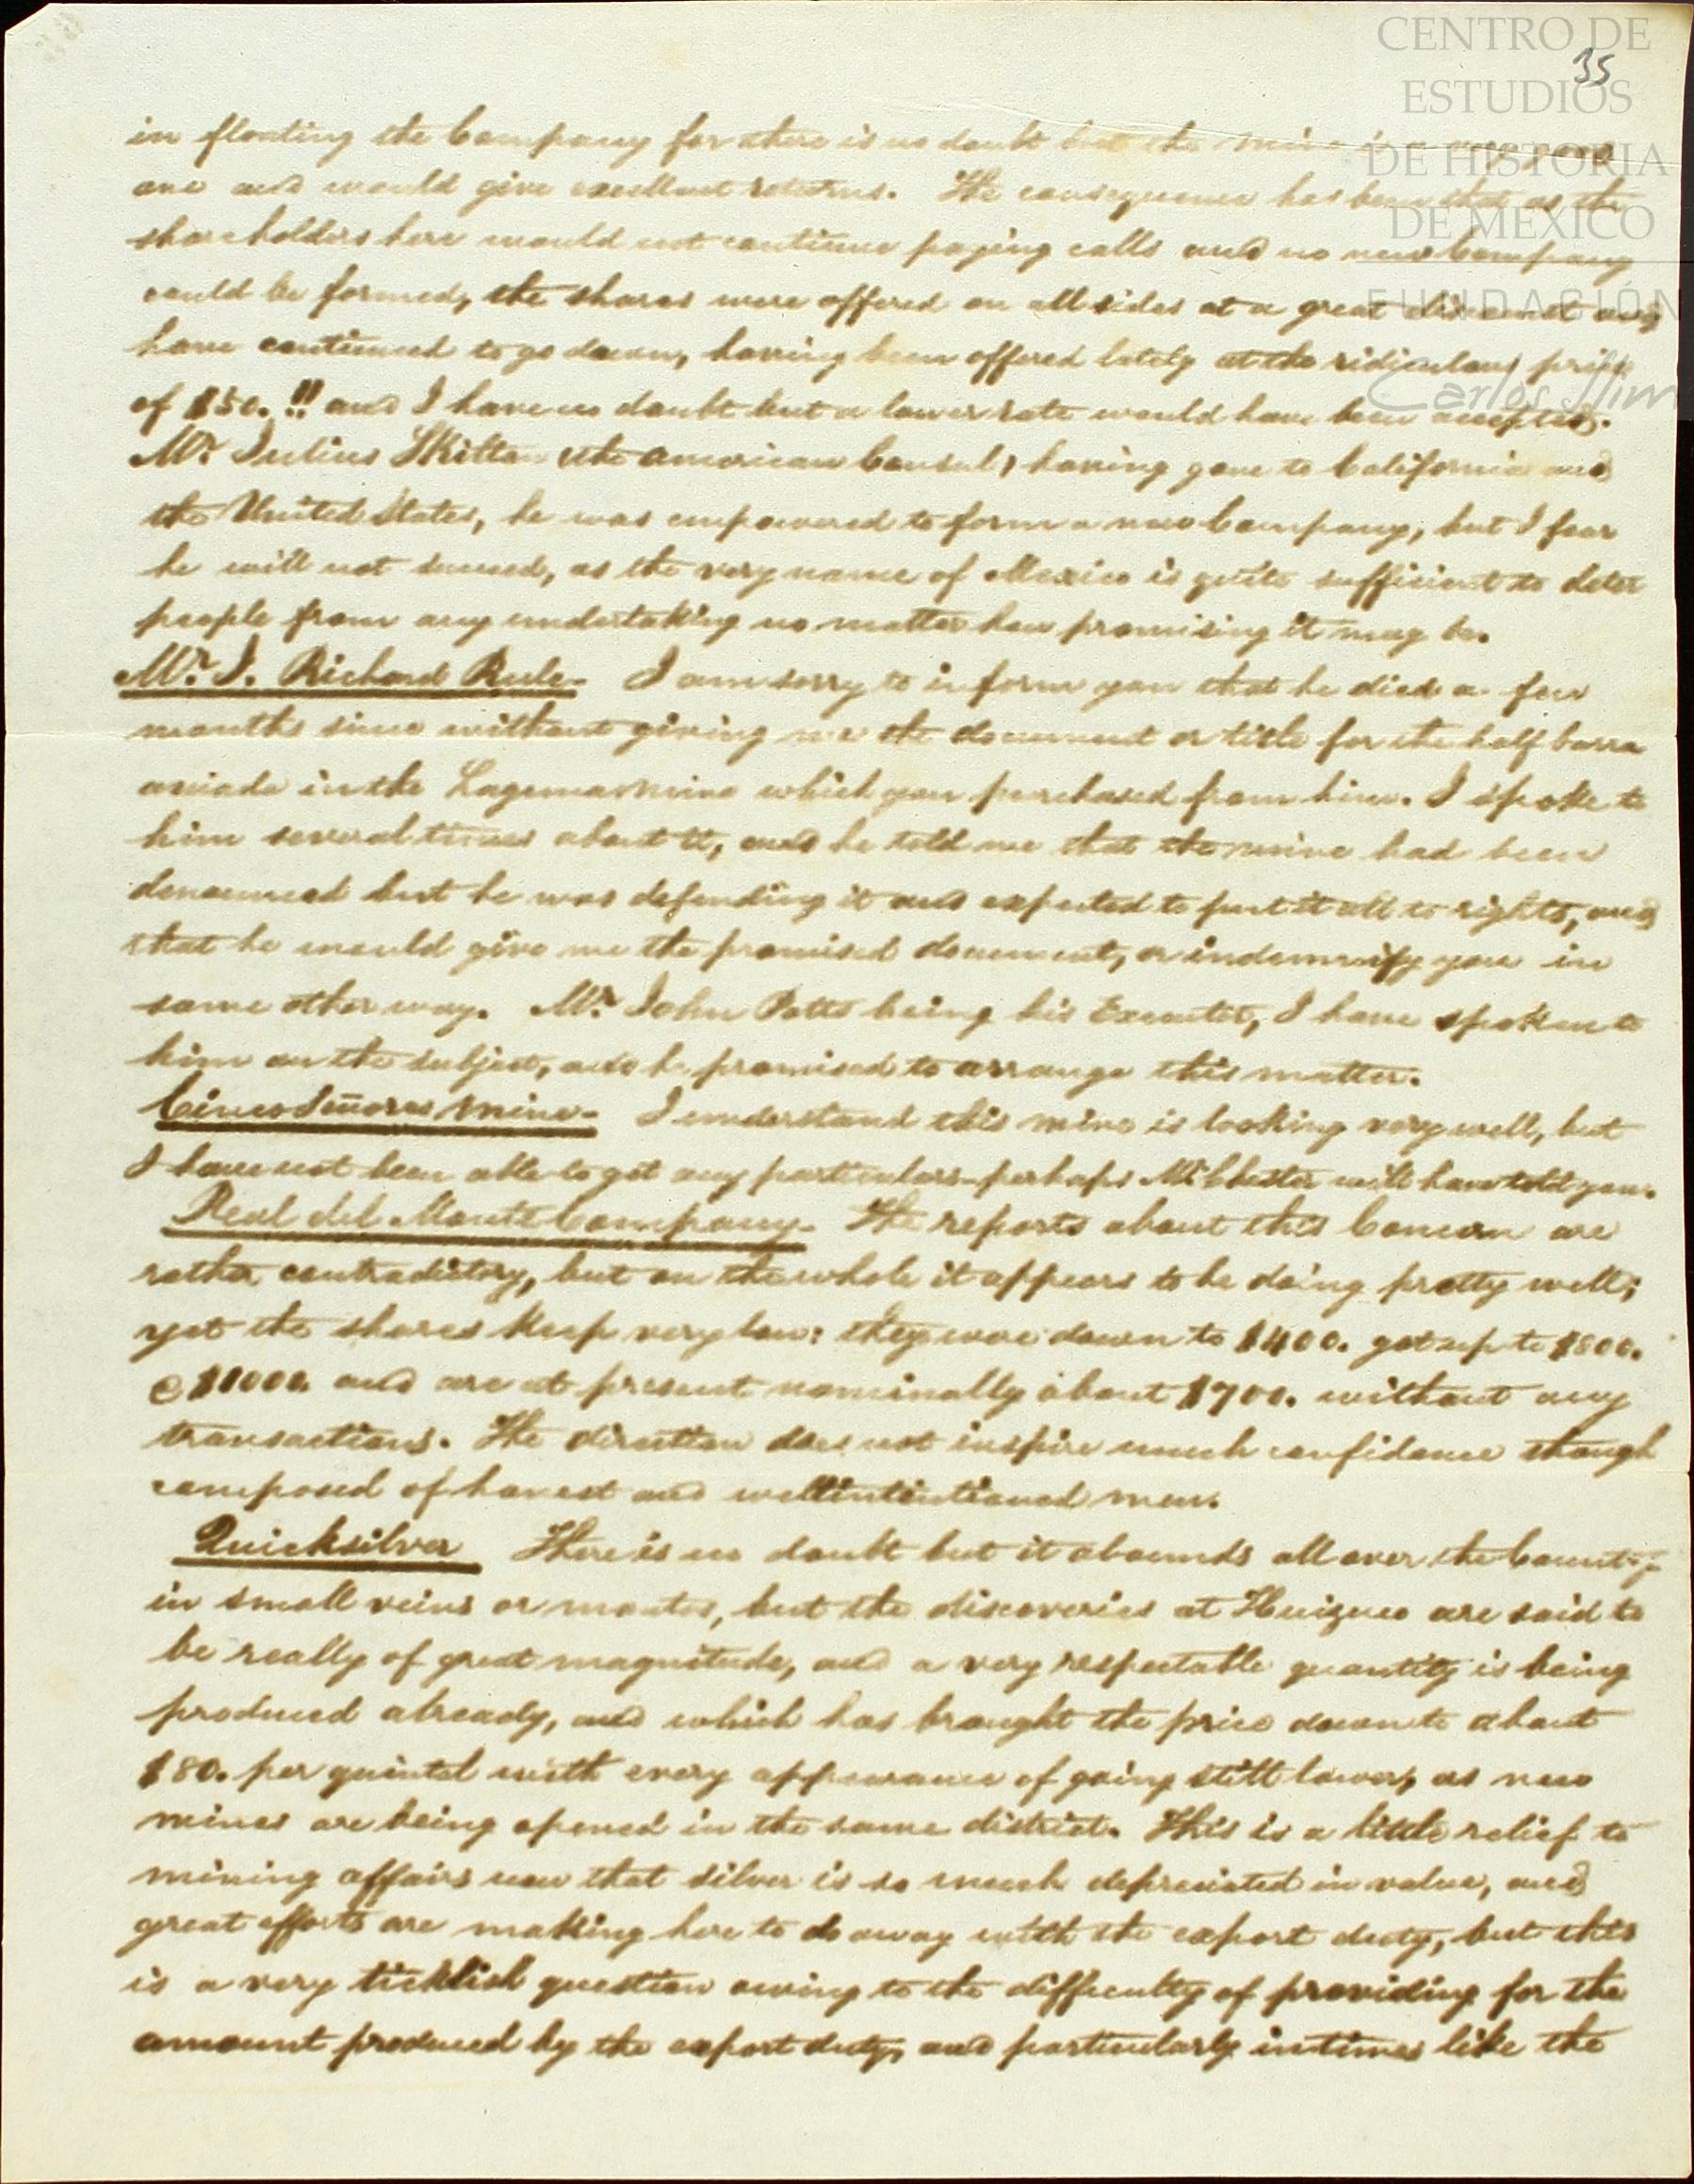 CENTRO DE
ESTUDIOS
DE HISTORIA
DE MEXICO
FUNDACIÓN
Carlos Slim
35
in floating the Company for there is no doubt but the mine is a very good
one and would give excellent returns. The consequence has been that as the
shareholders here would not continue paying calls and no new Company
could be formed, the shares were offered on all sides at a great discount and
have continued to go down, having been offered lately at the ridiculous price
of $50. !! and I have no doubt but a lower rate would have been accepted.
Mr. Julius Skilton (the American Consul) having gone to California and
the United States, he was empowered to form a new Company, but I fear
he will not succeed, as the very name of Mexico is quite sufficient to deter
people from any undertaking no matter how promising it may be.
Mr. J. Richard Rule - I am sorry to inform you that he died a few
months since without giving me the document or title for the half barra
aviada in the mine which you purchased from him. I spoke to
him several times about it, and he told me that the mine had been
denounced but he was defending it and expected to put it all to rights, and
that he would give me the promised document, or indemnify you in
some other way. Mr. John Potts being his Executor, I have spoken to
him on the subject, and he promised to arrange this matter.
Cinco Señores Mine - I understand this mine is looking very well, but
I have not been able to get any particulars - perhaps Mr. Chester will have told you.
Real del Monte Company - The reports about this Concern are
rather contradictory, but on the whole it appears to be doing pretty well;
yet the shares keep very low: they were down to $400. got up to $800.
@ $1000. and are at present nominally about $700. without any
transactions. The direction does not inspire much confidence though
composed of honest and wellintentioned men.
Quicksilver There is no doubt but it abounds all over the Country
in small veins or mantos, but the discoveries at Huizuco are said to
be really of great magnitude, and a very respectable quantity is being
produced already, and which has brought the price down to about
$80. per quintal with every appearance of going still lower, as new
mines are being opened in the same district. This is a little relief to
mining affairs now that silver is so much depreciated in value, and
great efforts are making here to do away with the export duty, but this
is a very ticklish question owing to the difficulty of providing for the
amount produced by the export duty, and particularly in times like the